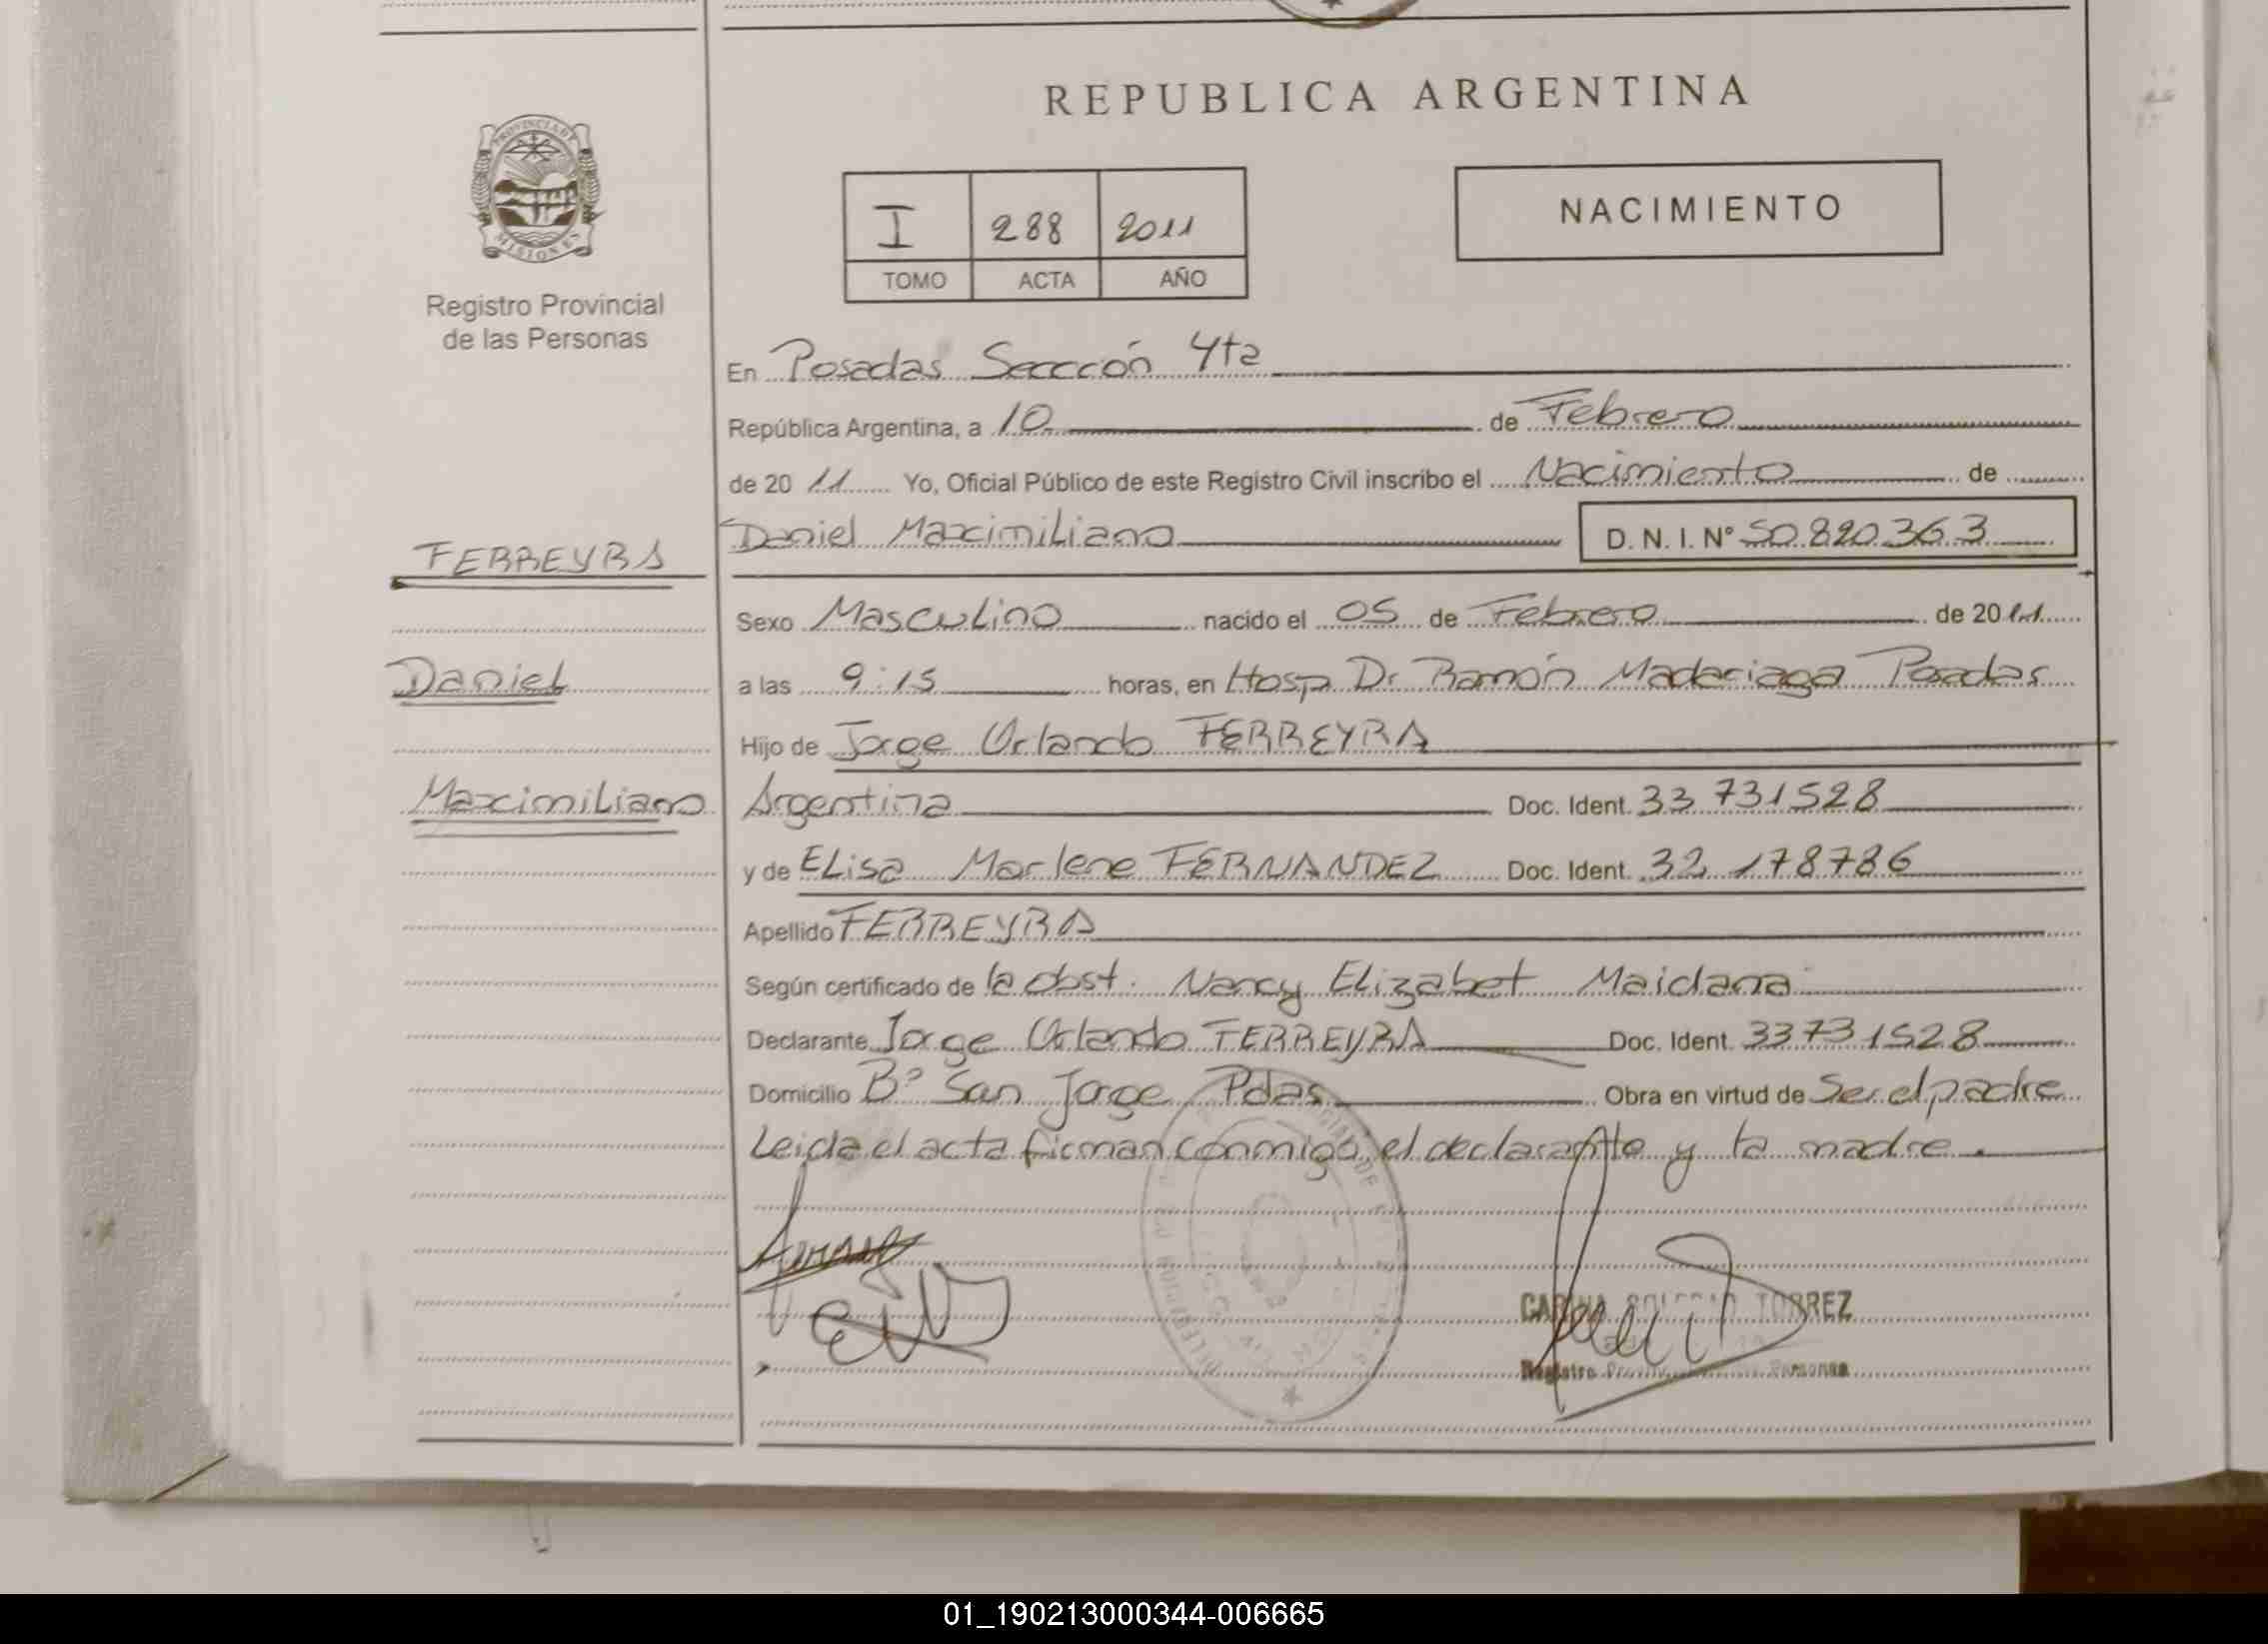 REPUBLICA ARGENTINA
PROVINCIA DE
MISIONES
Registro Provincial
de las Personas
I 288 2011
TOMO ACTA AÑO
NACIMIENTO
En Posadas Seccción 4ta
República Argentina, a 10 de Febrero
de 20 11 Yo, Oficial Público de este Registro Civil inscribo el Nacimiento de
FERREYRA
Daniel Maximiliano D. N. I. Nº 50.820.363
Sexo Masculino nacido el 05 de Febrero de 2011
Daniel
a las 9:15 horas, en Hosp Dr Ramón Madariaga Posadas
Hijo de Jorge Orlando FERREYRA
Maximiliano
Argentina Doc. Ident. 33 731528
y de ELisa Marlene FERNANDEZ Doc. Ident. 32 178786
Apellido FERREYRA
Según certificado de la obst. Nancy Elizabet Maidana
Declarante Jorge Orlando FERREYRA Doc. Ident. 33731528
Domicilio Bº San Jorge Pdas Obra en virtud de Ser el padre
Leida el acta firman conmigo, el declarante y la madre.
CARINA SOLEDAD TORREZ
Registro Personas
01_190213000344-006665